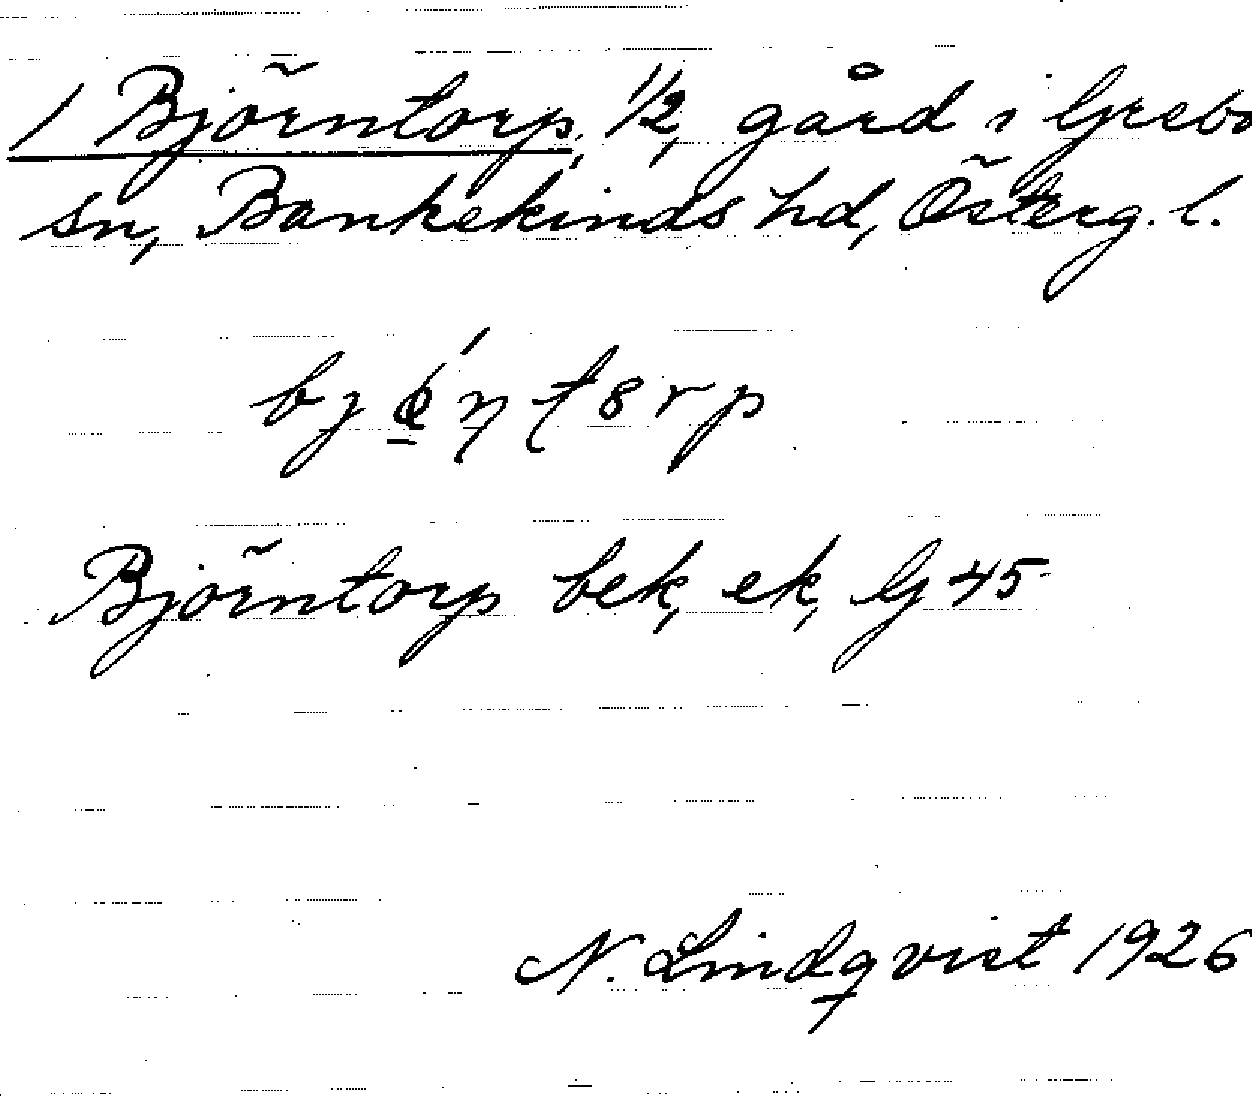 1 Björntorp, 1/2, gård i Grebo
sn, Bankekinds hd, Österg. l.
Björntorp bek, ek, G 45
N. Lindqvist 1926